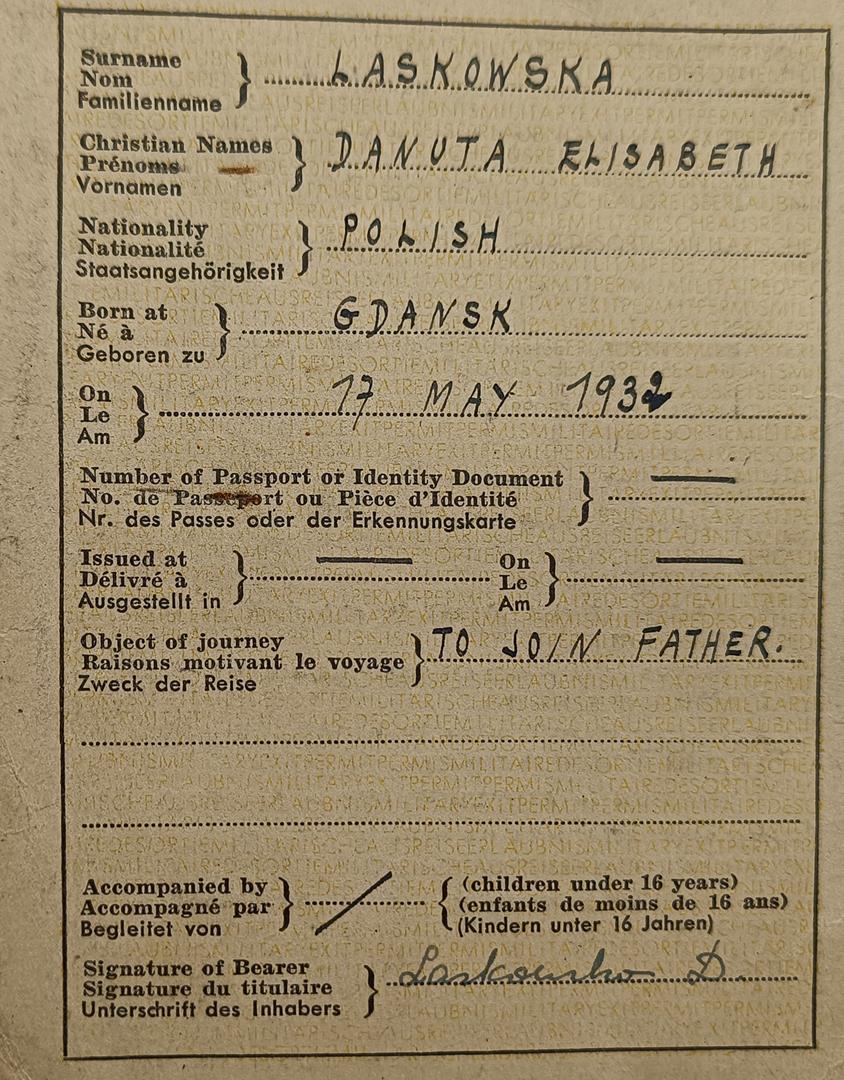 Surname
Nom
Familienname
LASKOWSKA
Christian Names
Prénoms
Vornamen
DANUTA ELISABETH
Nationality
Nationalité
Staatsangehörigkeit
POLISH
Born at
Né à
Geboren zu
GDANSK
On
Le
Am
17 MAY 1932
Number of Passport or Identity Document
No. de Passeport ou Pièce d'Identité
Nr. des Passes oder der Erkennungskarte
Issued at
Délivré à
Ausgestellt in
On
Le
Am
Object of journey
Raisons motivant le voyage
Zweck der Reise
TO JOIN FATHER.
Accompanied by
Accompagné par
Begleitet von
(children under 16 years)
(enfants de moins de 16 ans)
(Kindern unter 16 Jahren)
Signature of Bearer
Signature du titulaire
Unterschrift des Inhabers
Laskowska D.